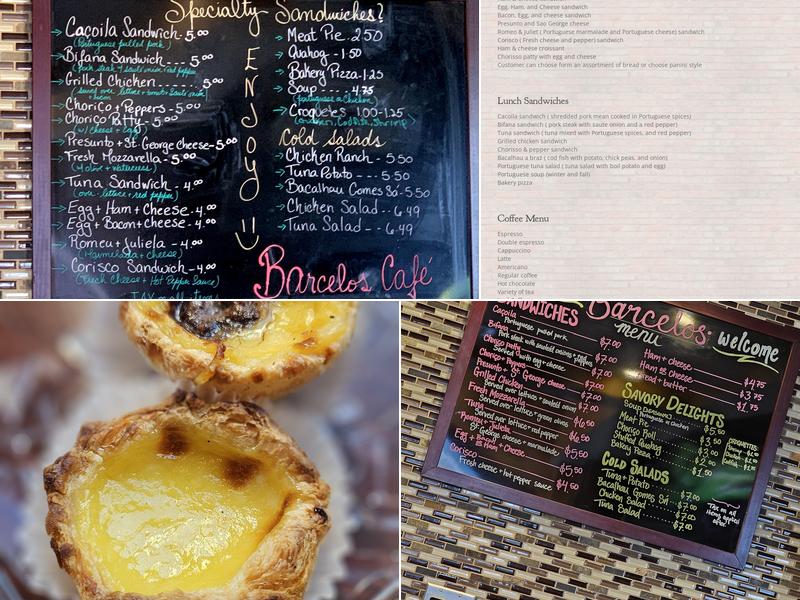 Specialty Sandwiches?
Cacoila Sandwich-5.00
(Portuguese pulled pork)
Bifana Sandwich---5.00
(Pork steak w/ sauté onion, red pepper
Grilled Chicken ---- 5.00
Chorico + Peppers - 5.00
Chorico Patty - 5.00
(w/ cheese + egg)
Presunto + St. George cheese-5.00
Fresh Mozzarella - 5.00
Tuna Sandwich - 4.00
(over lettuce + red pepper)
Egg + Ham + Cheese - 4.00
Egg + Bacon + Cheese - 4.00
Romeu + Juliela - 4.00
(Marmelada + cheese)
Corisco Sandwich - 4.00
(Fresh Cheese + Hot Pepper Sauce)
ENJOY
Meat Pie - 2.50
Quahog - 1.50
Bakery Pizza-1.25
Soup ---- 4.75
(portuguese or chicken)
Croquetes 1.00-1.25
(chicken, Codfish, Shrimp)
Cold salads
Chicken Ranch - 5.50
Tuna Potato --- 5.50
Bacalhau Gomes Sá-5.50
Chicken Salad -- 6.49
Tuna Salad -- 6.49
Barcelos Café
Egg, Ham, and Cheese sandwich
Bacon, Egg, and cheese sandwich
Presunto and Sao George cheese
Romeo & Juliet ( Portuguese marmalade and Portuguese cheese) sandwich
Corisco ( Fresh cheese and pepper) sandwich
Ham & cheese croissant
Chorisso patty with egg and cheese
Customer can choose form an assortment of bread or choose panini style
Lunch Sandwiches
Cacoila sandwich ( shredded pork mean cooked in Portuguese spices)
Bifana sandwich ( pork steak with saute onion and a red pepper)
Tuna sandwich ( tuna mixed with Portuguese spices, and red pepper)
Grilled chicken sandwich
Chorisso & pepper sandwich
Bacalhau a braz ( cod fish with potato, chick peas, and onion)
Portuguese tuna salad ( tuna salad with boil potato and egg)
Portuguese soup (winter and fall)
Bakery pizza
Coffee Menu
Espresso
Double espresso
Cappuccino
Latte
Americano
Regular coffee
Hot chocolate
Variety of tea
SANDWICHES
Barcelos:
menu
welcome
Cacoila $7.00
Portuguese pulled pork
Bifana $7.00
Chorico patty $7.00
Served with egg + cheese
Chorico + Peppers $7.00
Presunto + St. George cheese $7.00
Grilled Chicken $7.00
Fresh Mozzarella $6.50
Tuna $6.50
Served over lettuce + red pepper
Romeu + Juliela $5.50
St George cheese + marmalade
Egg + $5.50
Corisco $4.50
Fresh cheese + hot pepper sauce
Ham + cheese $4.75
$3.75
Bread + butter $1.75
SAVORY DELIGHTS
Soup
Meat Pie
Chorico Roll
Stuffed Quahog
Bakery Pizza
COLD SALADS
Tuna + Potato $7.00
Bacalhau Gomes Sá $7.00
Chicken Salad $7.00
Tuna Salad $7.00